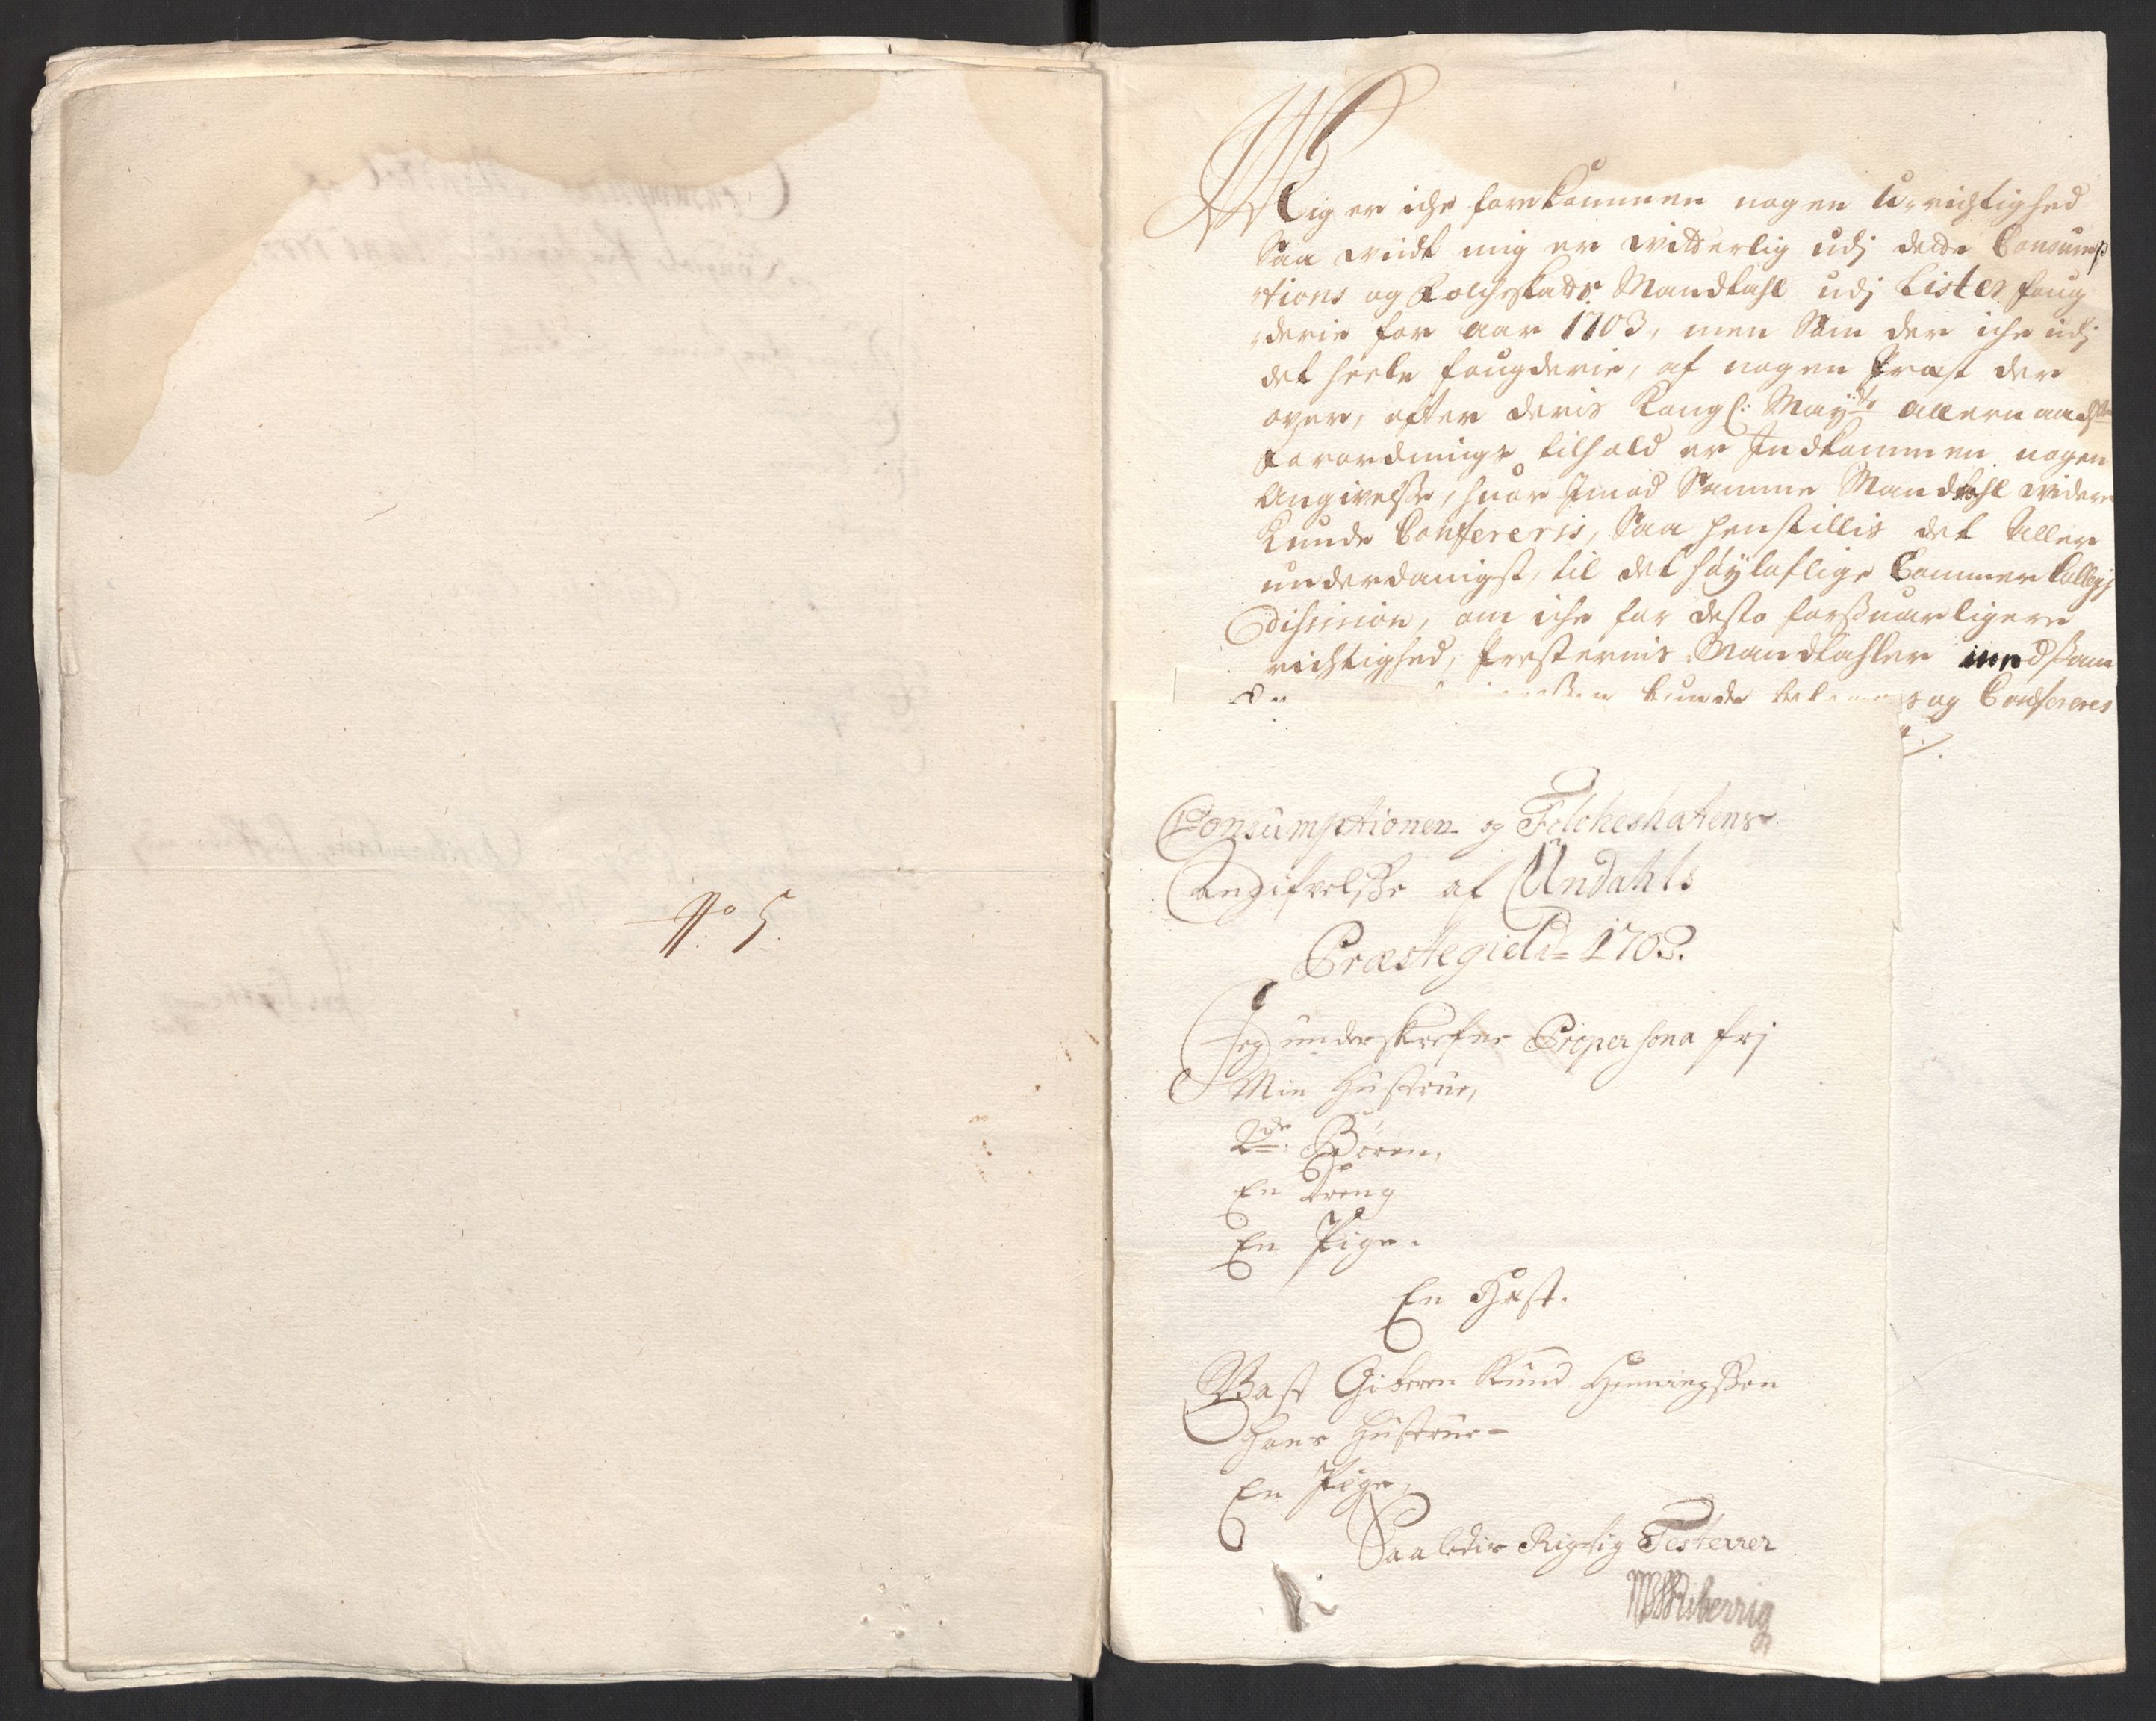 No 5.
Mig er iche forekommen nogen U-richtighed
Saa viidt mig er vitterlig udj dette Consump
tions og Folcheskatts Mandtahl udj Lister foug
derie for aar 1703, men Som der iche udj
det heele fougderie, af nogen Præst der
over, efter deris Kongl: Mayts allernaadigste
Forordnings tilhold er Indkommen nogen
Angivelsse, huor Imod Samme Mandtahl videre
Kunde Confereris, Saa henstillis det aller
underdanigst, til det höyloflige Cammer Collegij
Disission, om iche for desto forsvarligere
richtighed, Presternis Mandtahler
kunde og Confereres
Consumptionen og Folcheskatens
Angifvelsse af Undahls
Præstegield 1703.
Jeg underskrefne Propersona frj
Min Hustrue,
2de Börn,
En Dreng
En Pige.
En Hæst.
Gifteren Knud Henningssøn
Hans Hustrue
En Pige,
Saaledis Rigtig Testerrer